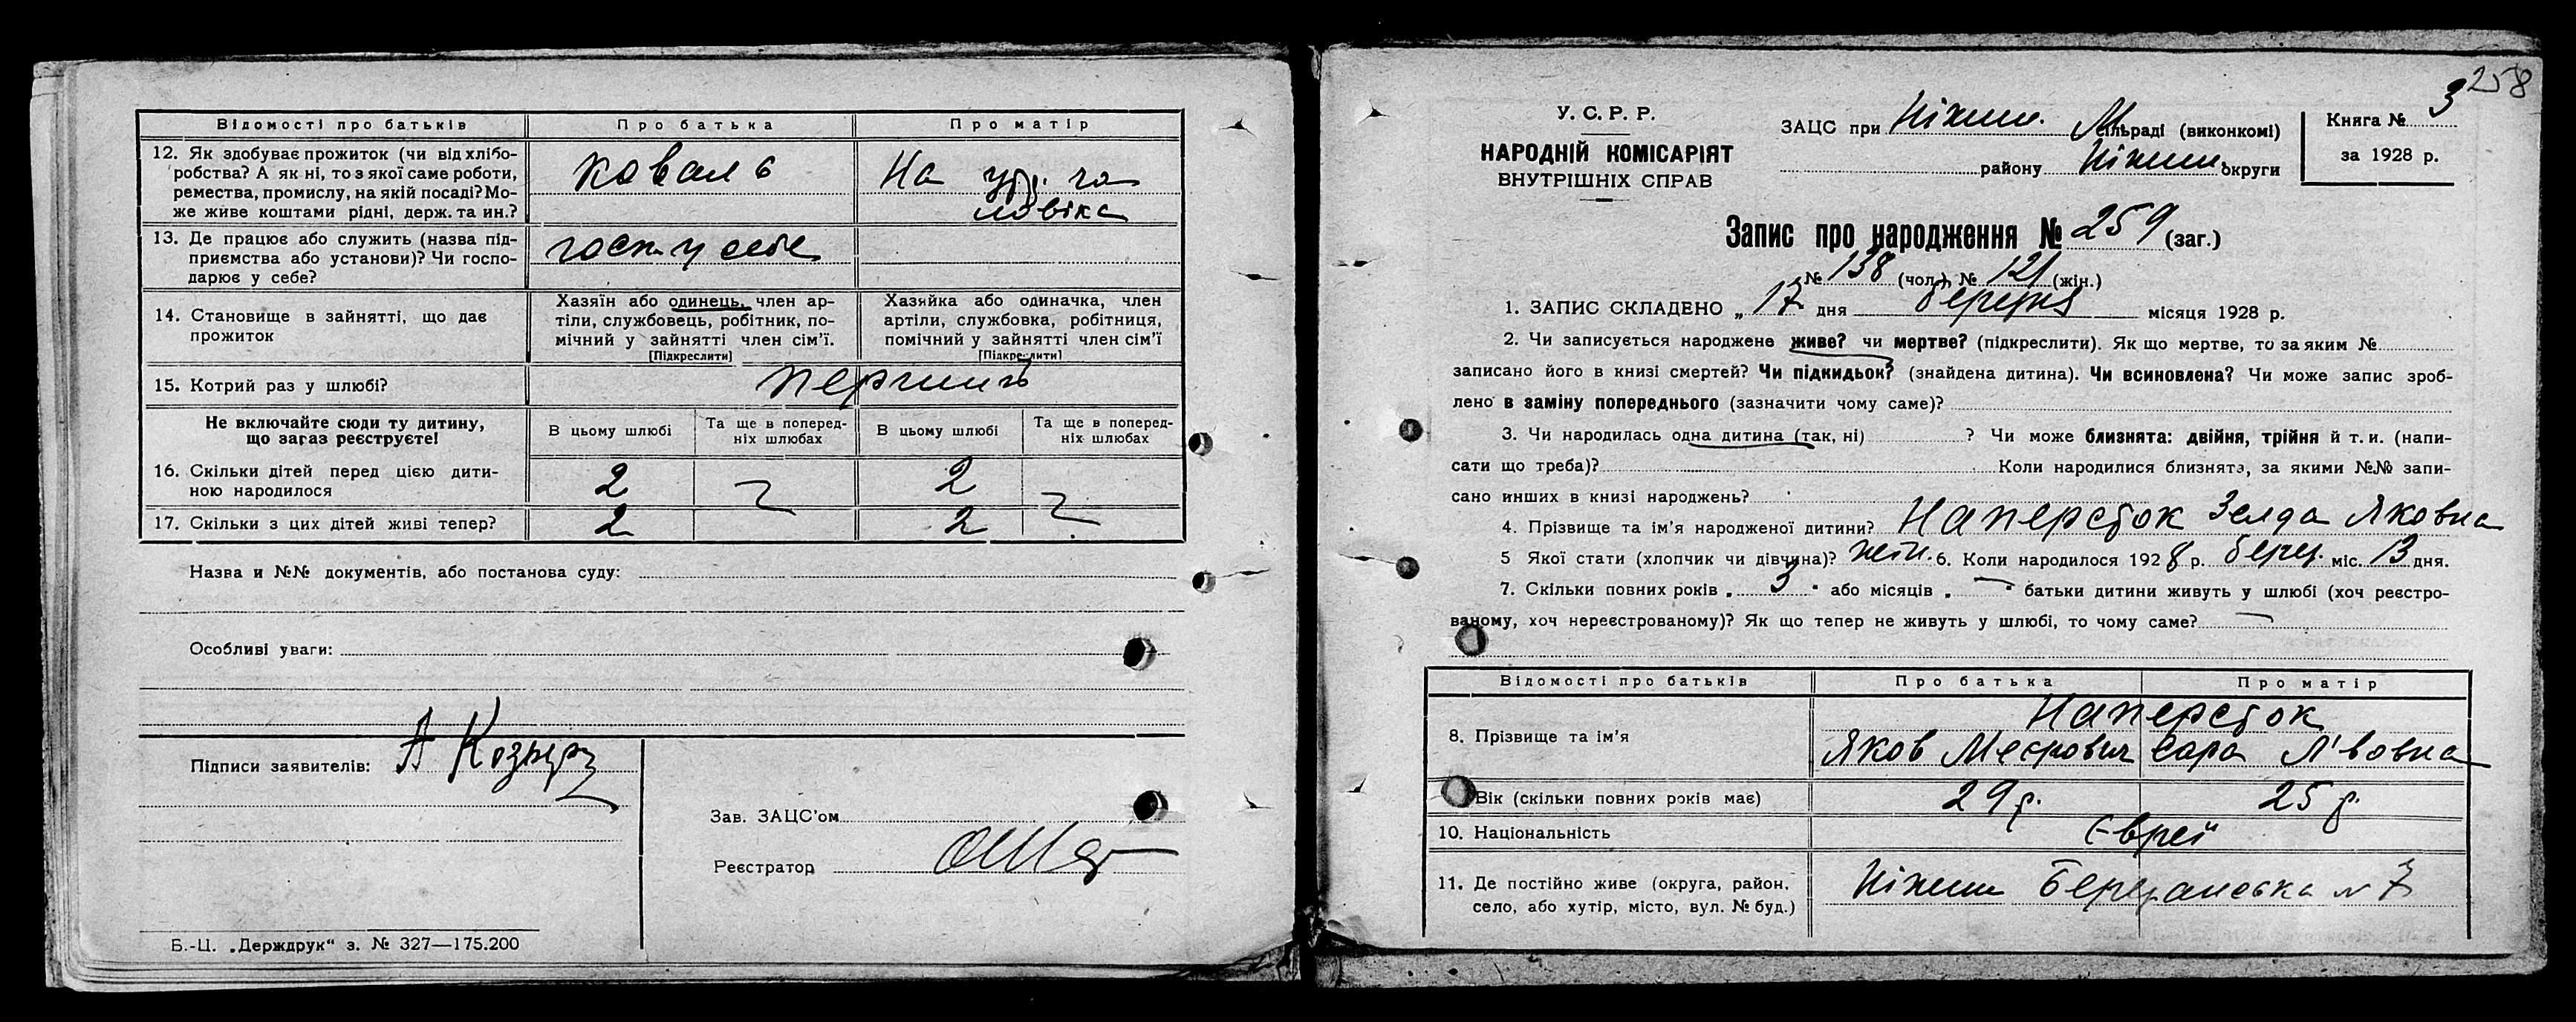 Відомості про батьків Про батька Про матір
12. Як здобуває прожиток (чи від хлібо-
робства? А як ні, то з якої саме роботи,
ремества, промислу, на якій посаді? Мо-
же живе коштами рідні, держ. та ин.?
коваль
На утр. чо
ловіка
13. Де працює або служить (назва під-
приємства або установи)? Чи госпо-
дарює у себе?
госп. у себе
14. Становище в зайнятті, що дає
прожиток
Хазяїн або одинець, член ар-
тіли, службовець, робітник, по-
мічний у зайнятті член сім'ї.
[Підкреслити]
Хазяйка або одиначка, член
артіли, службовка, робітниця,
помічний у зайнятті член сім'ї
[Підкреслити]
15. Котрий раз у шлюбі? перший
Не включайте сюди ту дитину,
що загаз реєструєте!
В цьому шлюбі
Та ще в поперед-
ніх шлюбах
В цьому шлюбі
Та ще в поперед-
ніх шлюбах
16. Скільки дітей перед цією дити-
ною народилося
2 2
17. Скільки з цих дітей живі тепер? 2 2
Назва и №№ документів, або постанова суду:
Особливі уваги:
Підписи заявителів: А Козыр
Зав. ЗАЦС'ом
Реєстратор
Б.-Ц. „Держдрук“ з. № 327—175.200
258
У. С. Р. Р.
НАРОДНІЙ КОМІСАРІЯТ
ВНУТРІШНІХ СПРАВ
ЗАЦС при Ніжин. М сільраді (виконкомі)
району Ніжин. округи
Книга № 3
за 1928 р.
Запис про народження № 259 (заг.)
№ 138 (чол.), № 121 (жін.)
1. ЗАПИС СКЛАДЕНО „ 17 дня березня місяця 1928 р.
2. Чи записується народжене живе? чи мертве? (підкреслити). Як що мертве, то за яким №
записано його в книзі смертей? Чи підкидьок? (знайдена дитина). Чи всиновлена? Чи може запис зроб-
лено в заміну попереднього (зазначити чому саме)?
3. Чи народилась одна дитина (так, ні) ? Чи може близнята: двійня, трійня й т. и. (напи-
сати що треба)? Коли народилися близнята, за якими №№ запи-
сано инших в книзі народжень?
4. Прізвище та ім'я народженої дитини? Наперсток Зелда Яковна
5 Якої стати (хлопчик чи дівчина)? жін. 6. Коли народилося 1928 р. берез. міс. 13 дня.
7. Скільки повних років „ 3 “ або місяців „ — “ батьки дитини живуть у шлюбі (хоч реєстро-
ваному, хоч нереєстрованому)? Як що тепер не живуть у шлюбі, то чому саме? —
Відомості про батьків Про батька Про матір
8. Прізвище та ім'я
Наперсток
Яков Меєрович Сара Л'вовна
Вік (скільки повних років має) 29 р. 25 р.
10. Національність Єврей
11. Де постійно живе (округа, район,
село, або хутір, місто, вул. № буд.)
Ніжин Березанська № 7